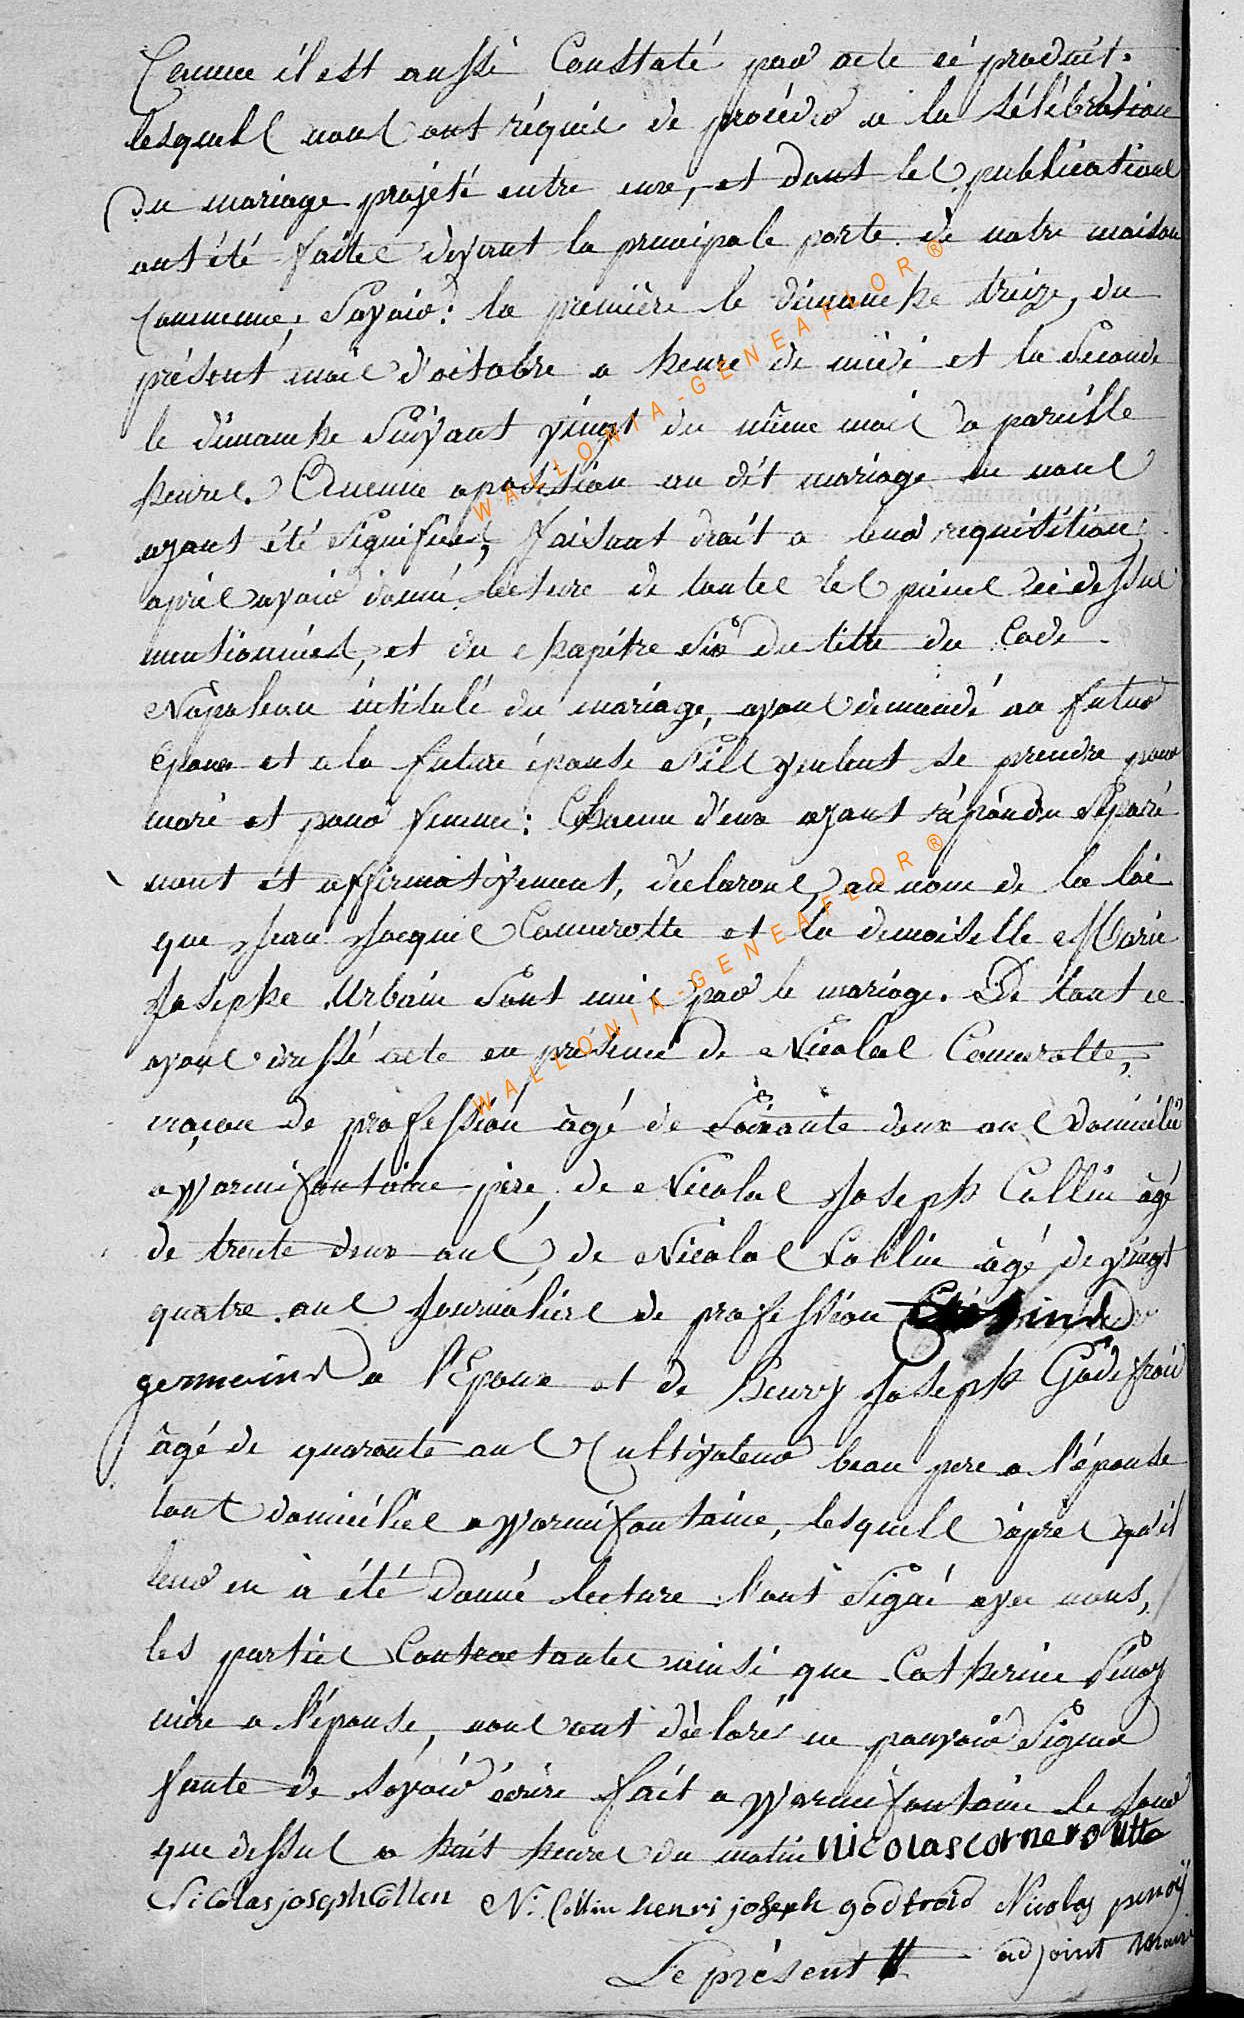 Comme il est aussi Constaté par acte ci produit.
lesquels nous ont réquis de procéder a la Sélébration
du mariage projeté entre eux, et dont les publications
ont été faites devant la principale porte de notre maison
Commune, Savoir: la première le dimanche treize, du
présent mois d'octobre a heure de midi et la Seconde
le dimanche Suivant vingt du même mois a pareille
heures. Aucune oposition au dit mariage ne nous
ayant été Signifiée, faisant droit a leur requisition,
après avoir donné lecture de toutes les pièces ci dessus
mentionnées, et du chapitre Six du titre du Code
Napoleon intitulé du mariage, avons demandé au futur
Epoux et a la future épouse S'ils veulent se prendre pour
mari et pour femme: Chacun d'eux ayant répondu Séparé
ment et affirmativement, déclarons, au nom de la loi
que Jean Jacques Cornerotte et la demoiselle Marie
Josephe Urbain Sont unis par le mariage. De tout ce
avons dressé acte en présence de Nicolas Cornerotte,
maçon de profession âgé de Soixante deux ans domicilié
a Warmifontaine père, de Nicolas Joseph Collin âgé
de trente deux ans, de Nicolas Collin âgé de vingt
quatre ans Journaliers de profession
germains a l'Epoux et de Henry Joseph Godefroid
âgé de quarante ans Cultivateur beau pere a l'épouse
tous domiciliés a Warmifontaine, lesquels après qu'il
leur en à été donné lecture l'ont Signé avec nous,
les parties Contractantes ainsi que Catherine Pinoy
mère a l'épouse, nous ont déclaré ne pouvoir Signer
faute de Savoir écrire fait a Warmifontaine le Jour
que dessus a huit heures du matin nicolas cornerotte
Nicolas joseph Collin N. Collin henri joseph godfroid Nicolas penoÿ
Le présent adjoint maire
WALLONIA-GENEAFLOR ®
WALLONIA-GENEAFLOR ®